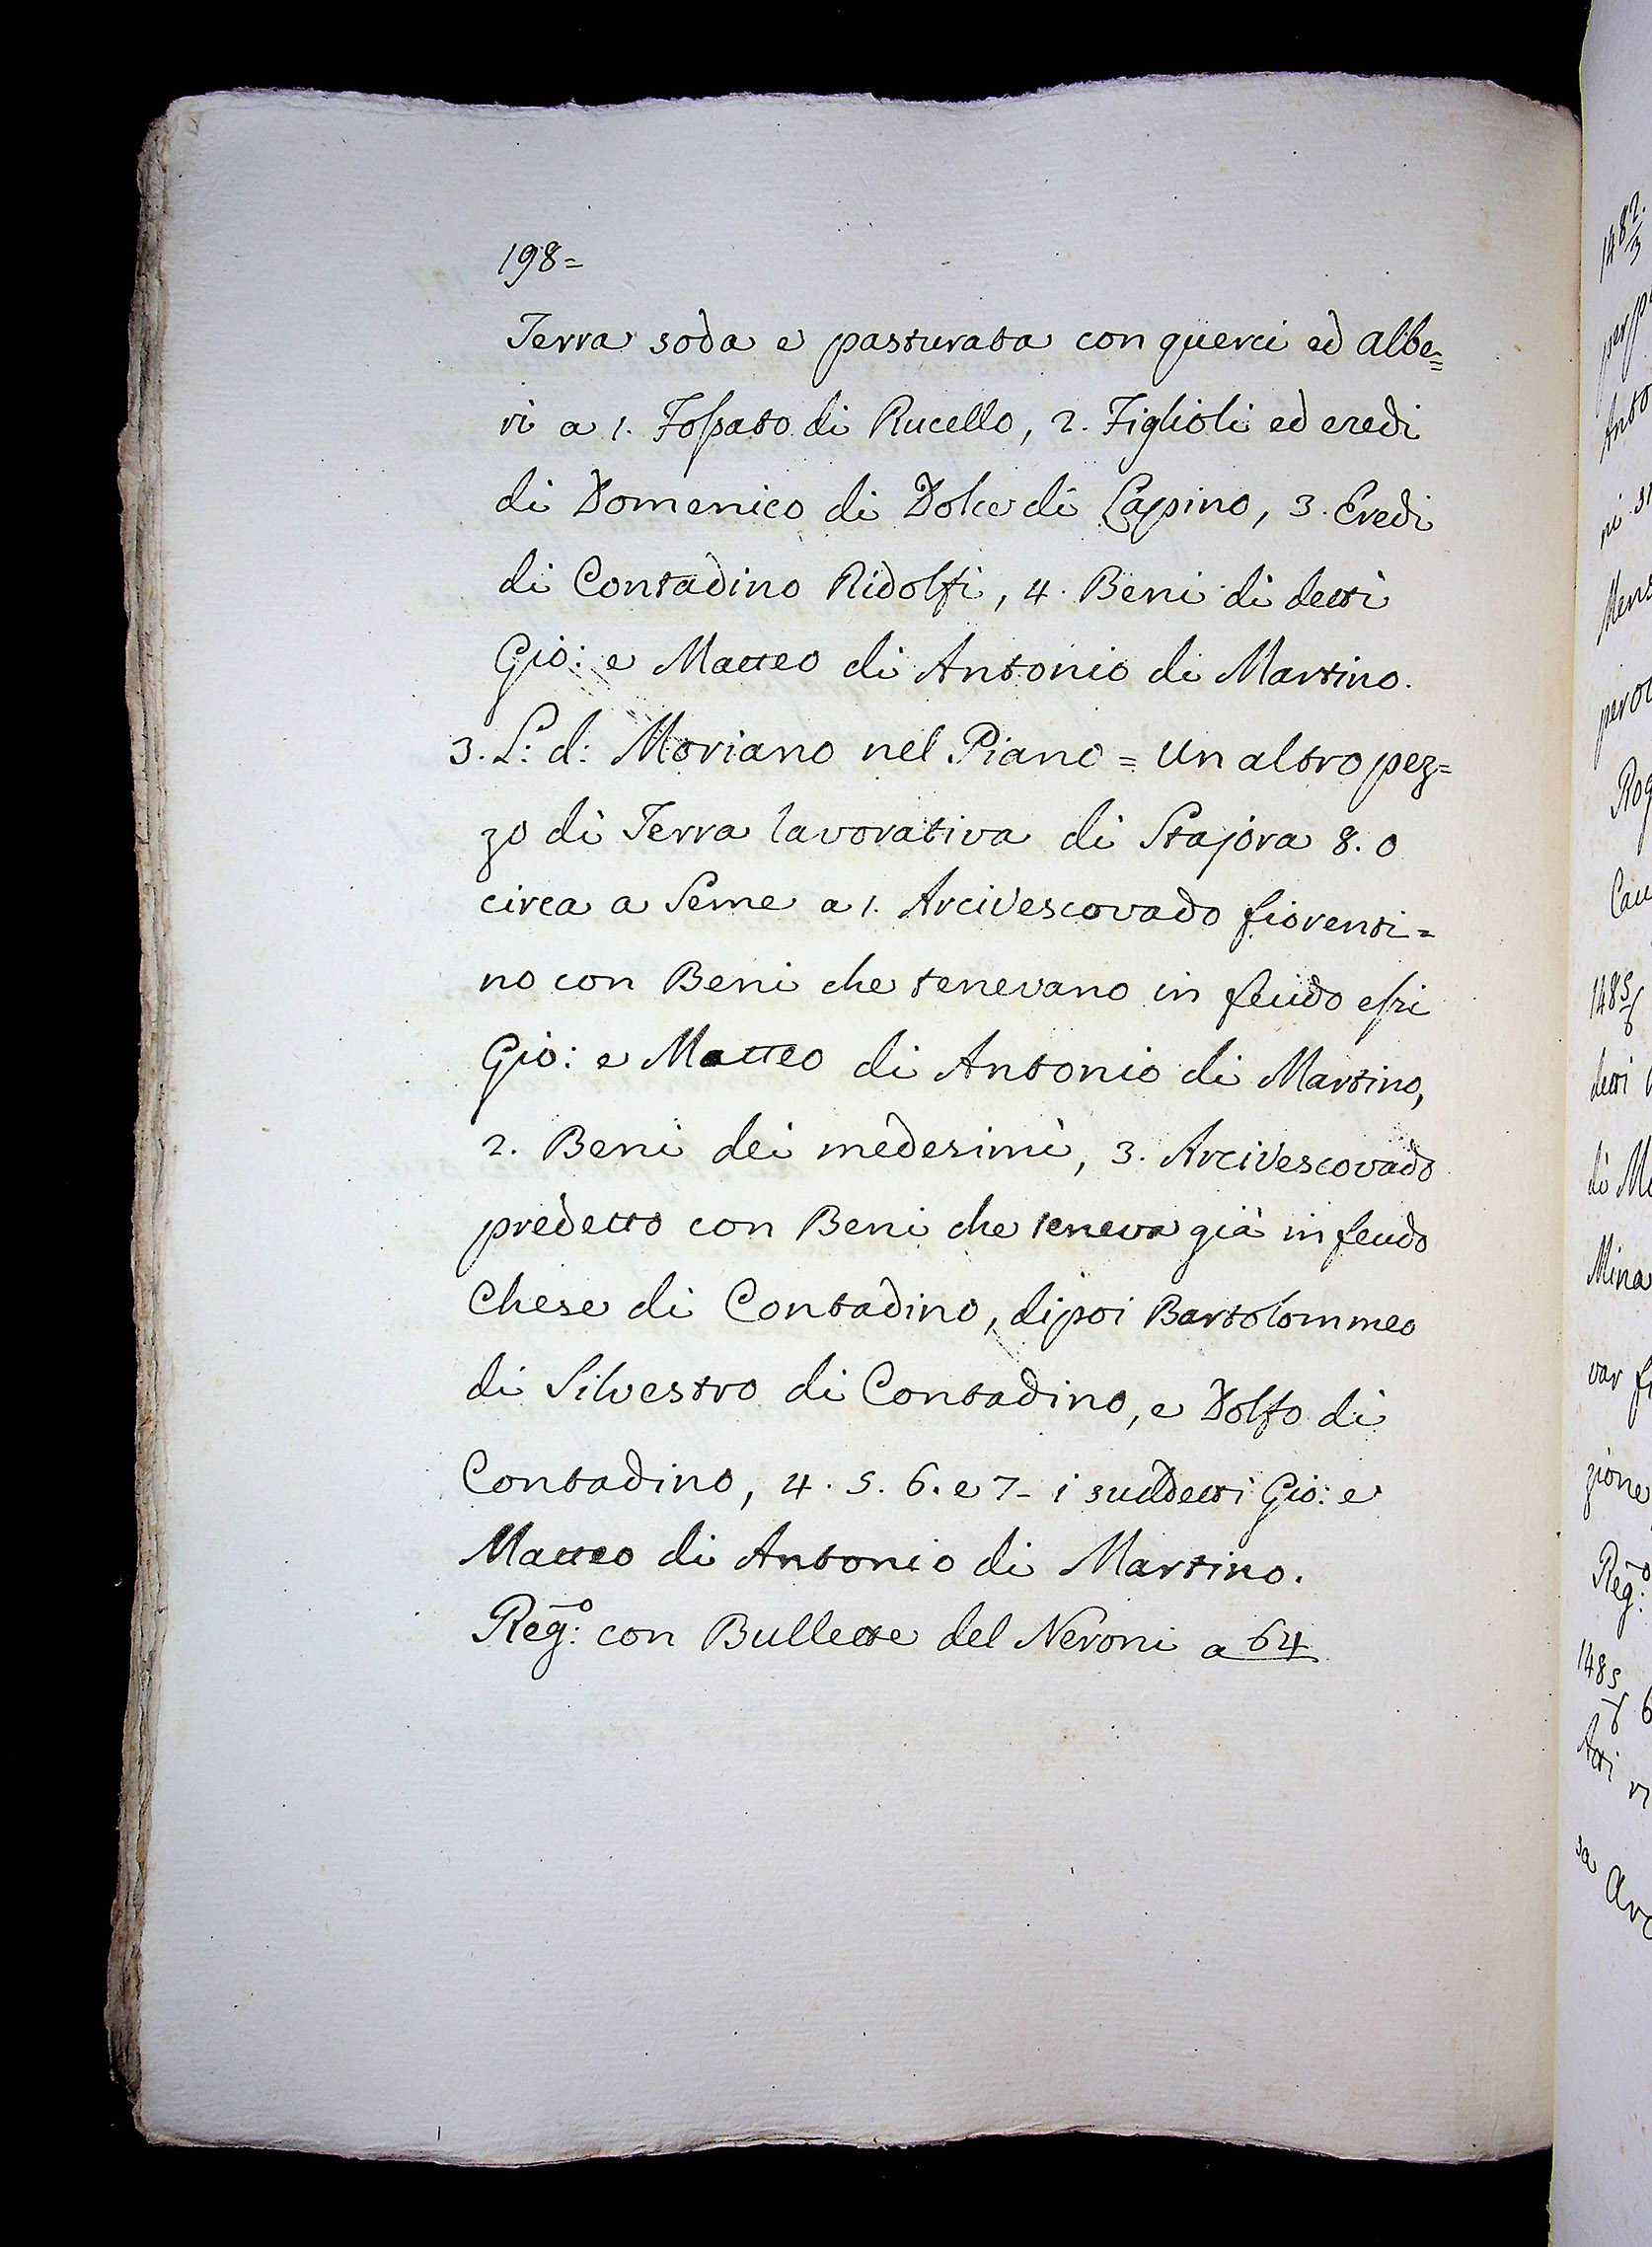 198=
Terra soda e pasturata con querci ed albe=
ri a 1. Fossato di Rucello, 2. Figlioli ed eredi
di Domenico di Dolce di Lapino, 3. Eredi
di Contadino Ridolfi, 4. Beni di detti
Gio: e Matteo di Antonio di Martino.
3. L: d: Moriano nel Piano = Un altro pez=
zo di Terra lavorativa di Stajora 8. o
circa a Seme a 1. Arcivescovado fiorenti=
no con Beni che tenevano in feudo essi
Gio: e Matteo di Antonio di Martino,
2. Beni dei medesimi, 3. Arcivescovado
predetto con Beni che teneva già in feudo
Chese di Contadino, dipoi Bartolommeo
di Silvestro di Contadino, e Dolfo di
Contadino, 4. 5. 6. e 7- i suddetti Gio: e
Matteo di Antonio di Martino.
Reg:o con Bullette del Neroni a 64
148 2/3
Anto
ni
Mens
Rog
148 5/6
detti
di
Mina
var
zione
Reg:o
148 5/6